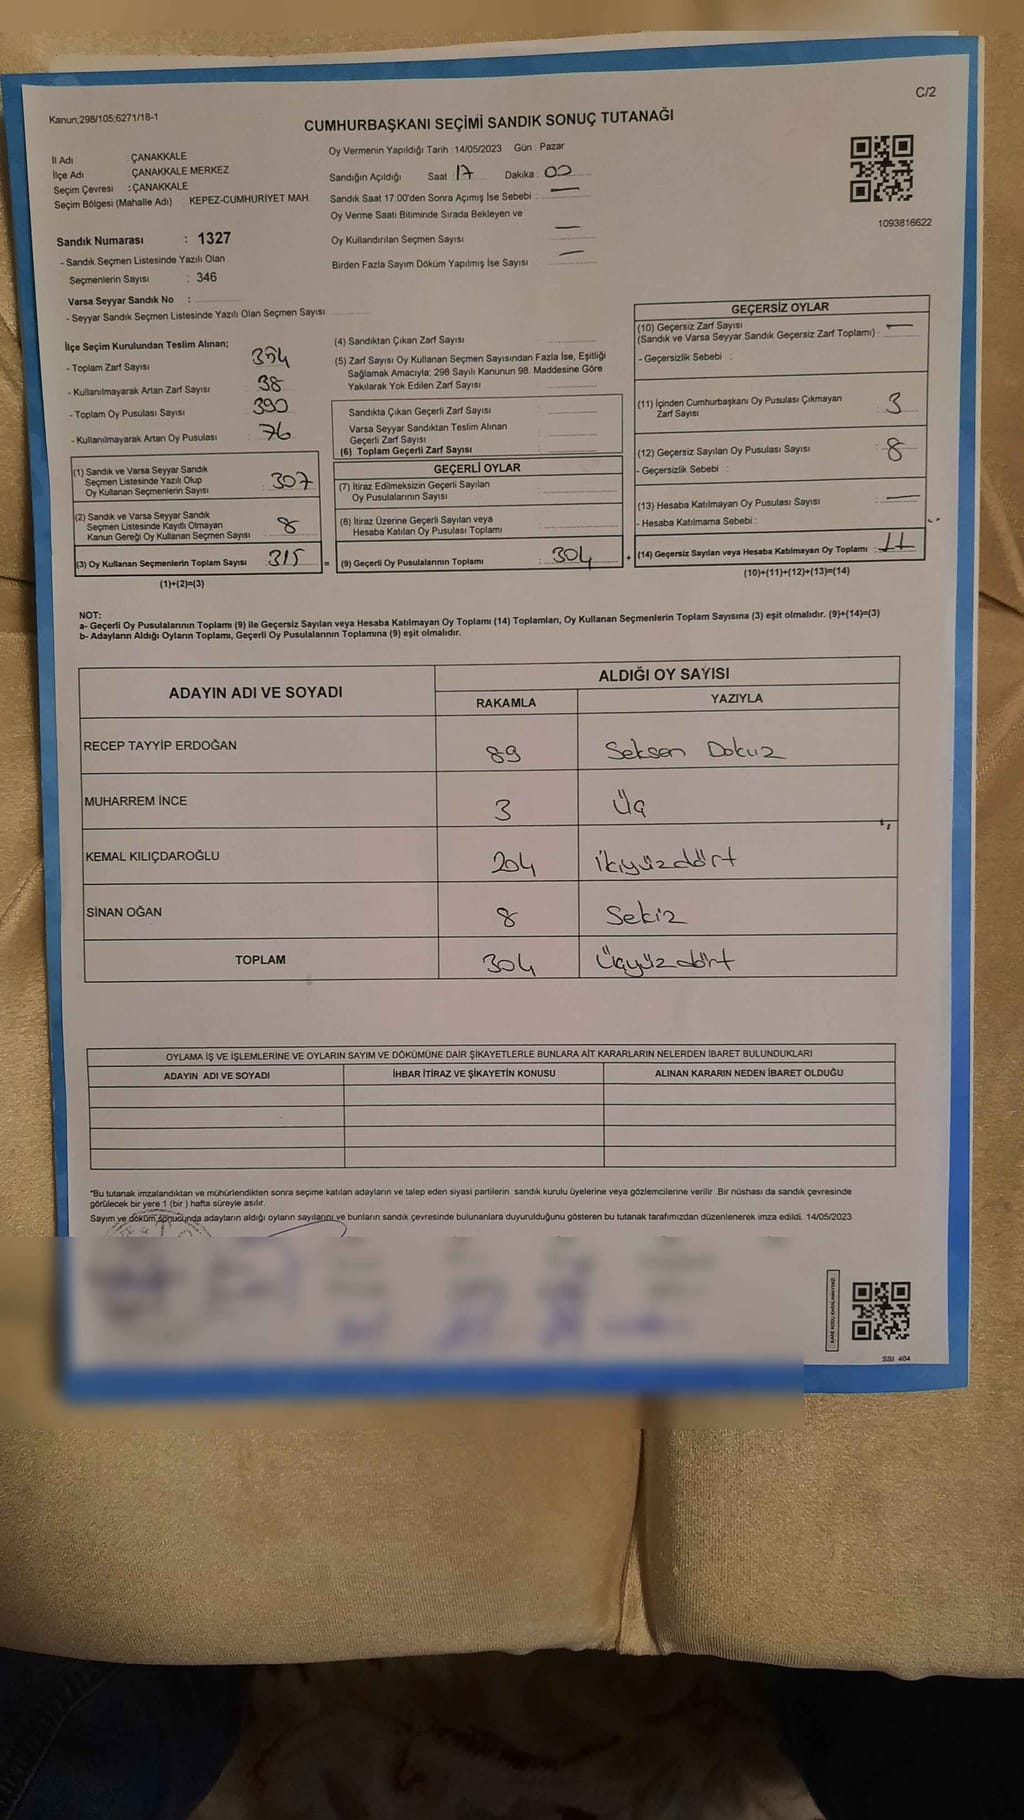 C/2
Kanun;298/105;6271/18-1
CUMHURBAŞKANI SEÇİMİ SANDIK SONUÇ TUTANAĞI
İl Adı : ÇANAKKALE
İlçe Adı : ÇANAKKALE MERKEZ
Seçim Çevresi : ÇANAKKALE
Seçim Bölgesi (Mahalle Adı) : KEPEZ-CUMHURİYET MAH.
Sandık Numarası : 1327
- Sandık Seçmen Listesinde Yazılı Olan
Seçmenlerin Sayısı : 346
Varsa Seyyar Sandık No :
- Seyyar Sandık Seçmen Listesinde Yazılı Olan Seçmen Sayısı:
Oy Vermenin Yapıldığı Tarih : 14/05/2023 Gün : Pazar
Sandığın Açıldığı Saat : 17 Dakika : 00
Sandık Saat 17:00'den Sonra Açımış İse Sebebi : —
Oy Verme Saati Bitiminde Sırada Bekleyen ve
Oy Kullandırılan Seçmen Sayısı : —
Birden Fazla Sayım Döküm Yapılmış İse Sayısı : —
1093816622
İlçe Seçim Kurulundan Teslim Alınan;
- Toplam Zarf Sayısı : 354
- Kullanılmayarak Artan Zarf Sayısı : 38
- Toplam Oy Pusulası Sayısı : 390
- Kullanılmayarak Artan Oy Pusulası : 76
(1) Sandık ve Varsa Seyyar Sandık
Seçmen Listesinde Yazılı Olup
Oy Kullanan Seçmenlerin Sayısı : 307
(2) Sandık ve Varsa Seyyar Sandık
Seçmen Listesinde Kayıtlı Olmayan
Kanun Gereği Oy Kullanan Seçmen Sayısı : 8
(3) Oy Kullanan Seçmenlerin Toplam Sayısı : 315
(1)+(2)=(3)
(4) Sandıktan Çıkan Zarf Sayısı :
(5) Zarf Sayısı Oy Kullanan Seçmen Sayısından Fazla İse, Eşitliği
Sağlamak Amacıyla; 298 Sayılı Kanunun 98. Maddesine Göre
Yakılarak Yok Edilen Zarf Sayısı :
Sandıkta Çıkan Geçerli Zarf Sayısı :
Varsa Seyyar Sandıktan Teslim Alınan
Geçerli Zarf Sayısı :
(6) Toplam Geçerli Zarf Sayısı :
GEÇERLİ OYLAR
(7) İtiraz Edilmeksizin Geçerli Sayılan
Oy Pusulalarının Sayısı :
(8) İtiraz Üzerine Geçerli Sayılan veya
Hesaba Katılan Oy Pusulası Toplamı :
= (9) Geçerli Oy Pusulalarının Toplamı : 304 +
GEÇERSİZ OYLAR
(10) Geçersiz Zarf Sayısı
(Sandık ve Varsa Seyyar Sandık Geçersiz Zarf Toplamı) : —
- Geçersizlik Sebebi :
(11) İçinden Cumhurbaşkanı Oy Pusulası Çıkmayan
Zarf Sayısı : 3
(12) Geçersiz Sayılan Oy Pusulası Sayısı : 8
- Geçersizlik Sebebi :
(13) Hesaba Katılmayan Oy Pusulası Sayısı : —
- Hesaba Katılmama Sebebi :
(14) Geçersiz Sayılan veya Hesaba Katılmayan Oy Toplamı : 11
(10)+(11)+(12)+(13)=(14)
NOT:
a- Geçerli Oy Pusulalarının Toplamı (9) ile Geçersiz Sayılan veya Hesaba Katılmayan Oy Toplamı (14) Toplamları, Oy Kullanan Seçmenlerin Toplam Sayısına (3) eşit olmalıdır. (9)+(14)=(3)
b- Adayların Aldığı Oyların Toplamı, Geçerli Oy Pusulalarının Toplamına (9) eşit olmalıdır.
ADAYIN ADI VE SOYADI
ALDIĞI OY SAYISI
RAKAMLA YAZIYLA
RECEP TAYYİP ERDOĞAN 89 Seksen Dokuz
MUHARREM İNCE 3 Üç
KEMAL KILIÇDAROĞLU 204 İkiyüzdört
SİNAN OĞAN 8 Sekiz
TOPLAM 304 Üçyüzdört
OYLAMA İŞ VE İŞLEMLERİNE VE OYLARIN SAYIM VE DÖKÜMÜNE DAİR ŞİKAYETLERLE BUNLARA AİT KARARLARIN NELERDEN İBARET BULUNDUKLARI
ADAYIN ADI VE SOYADI İHBAR İTİRAZ VE ŞİKAYETİN KONUSU ALINAN KARARIN NEDEN İBARET OLDUĞU
*Bu tutanak imzalandıktan ve mühürlendikten sonra seçime katılan adayların ve talep eden siyasi partilerin sandık kurulu üyelerine veya gözlemcilerine verilir. Bir nüshası da sandık çevresinde
görülecek bir yere 1 (bir ) hafta süreyle asılır.
Sayım ve döküm sonucunda adayların aldığı oyların sayılarını ve bunların sandık çevresinde bulunanlara duyurulduğunu gösteren bu tutanak tarafımızdan düzenlenerek imza edildi. 14/05/2023
SSI 404